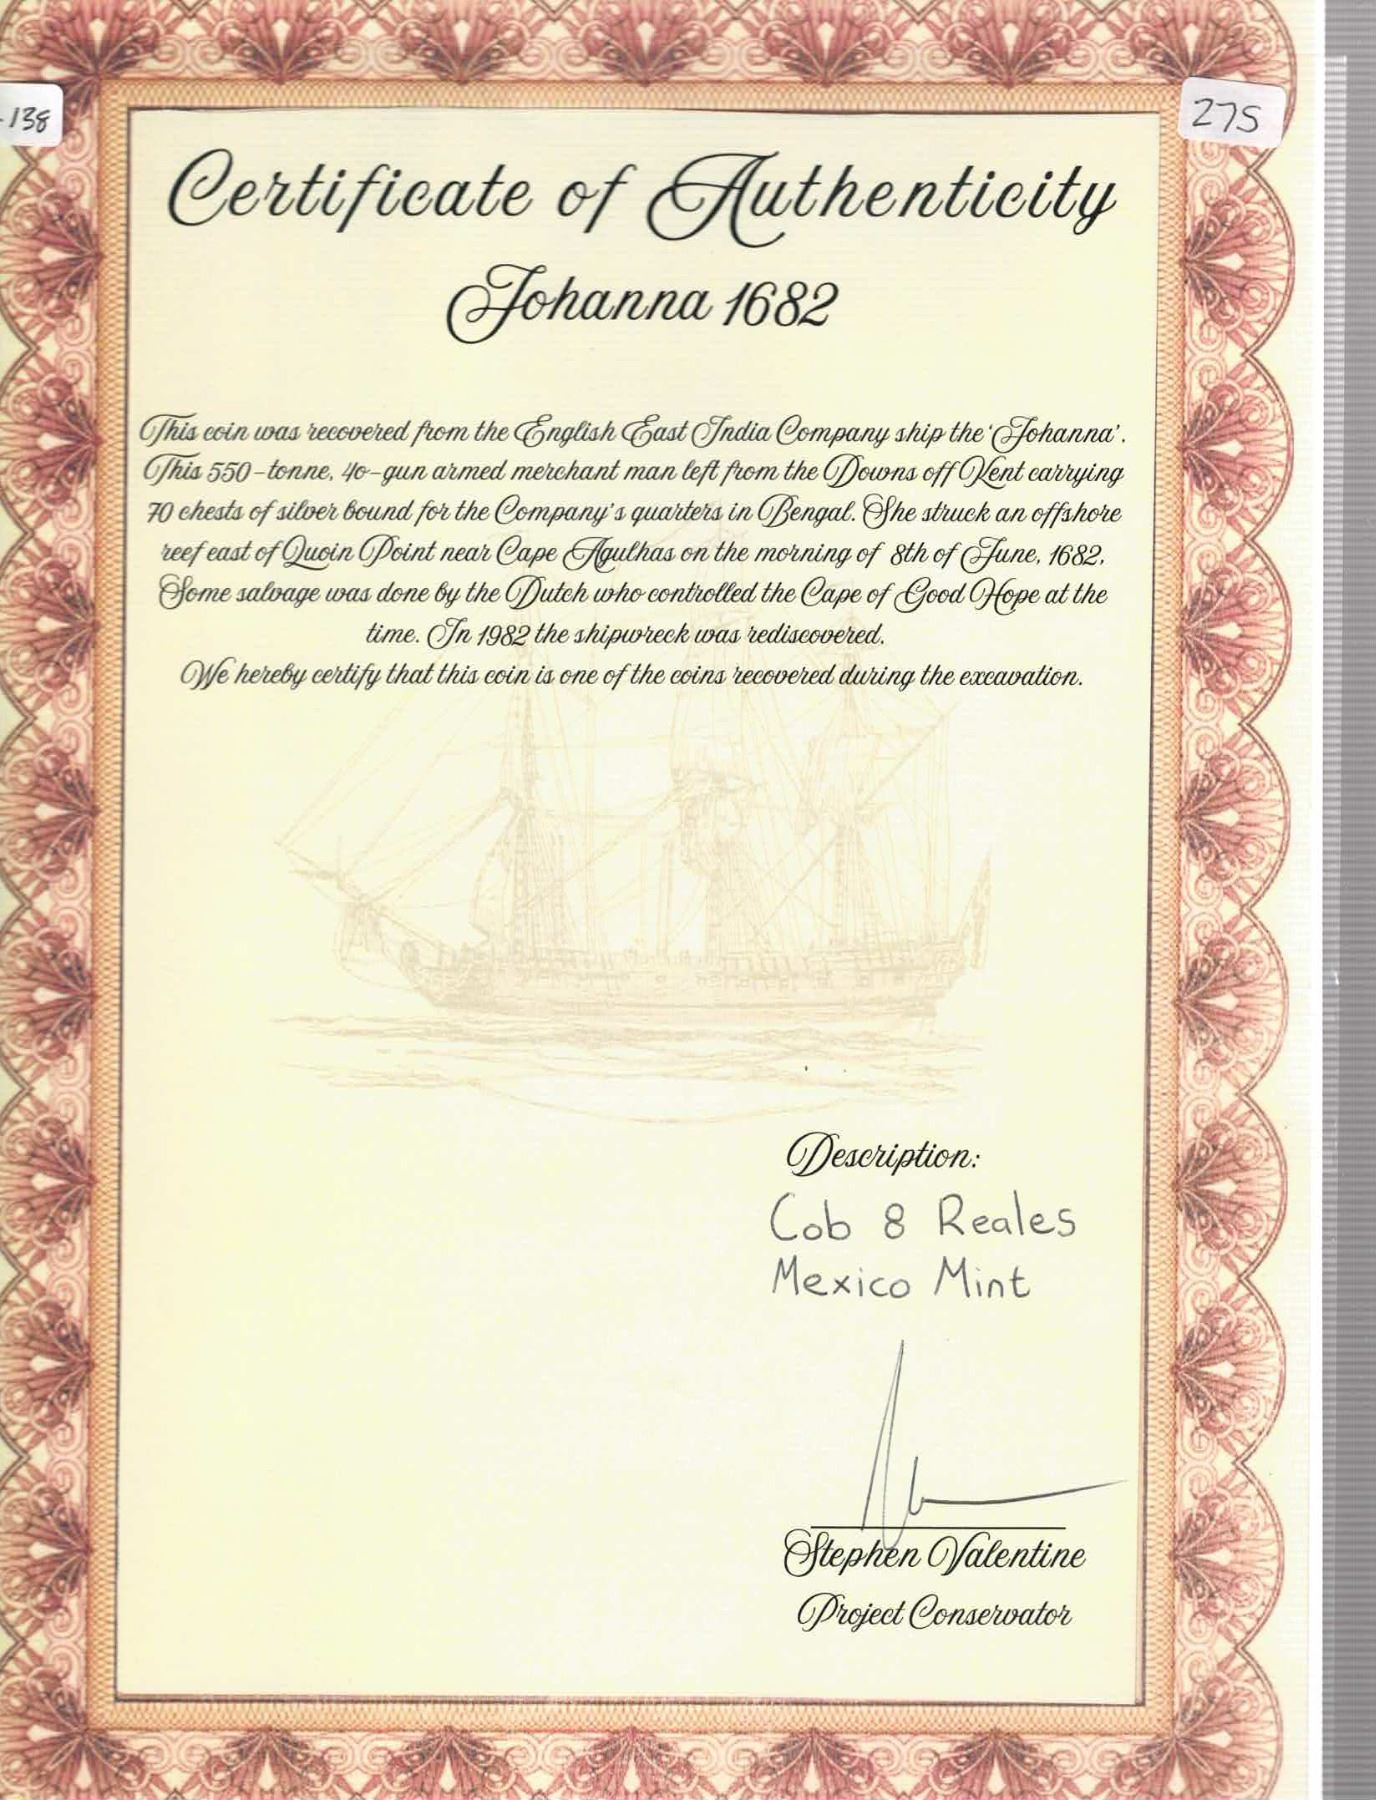 -138
275
Certificate of Authenticity
Johanna 1682
This coin was recovered from the English East India Company ship the 'Johanna'.
This 550-tonne, 40-gun armed merchant man left from the Downs off Kent carrying
70 chests of silver bound for the Company's quarters in Bengal. She struck an offshore
reef east of Quoin Point near Cape Agulhas on the morning of 8th of June, 1682.
Some salvage was done by the Dutch who controlled the Cape of Good Hope at the
time. In 1982 the shipwreck was rediscovered.
We hereby certify that this coin is one of the coins recovered during the excavation.
Description:
Cob 8 Reales
Mexico Mint
Stephen Valentine
Project Conservator